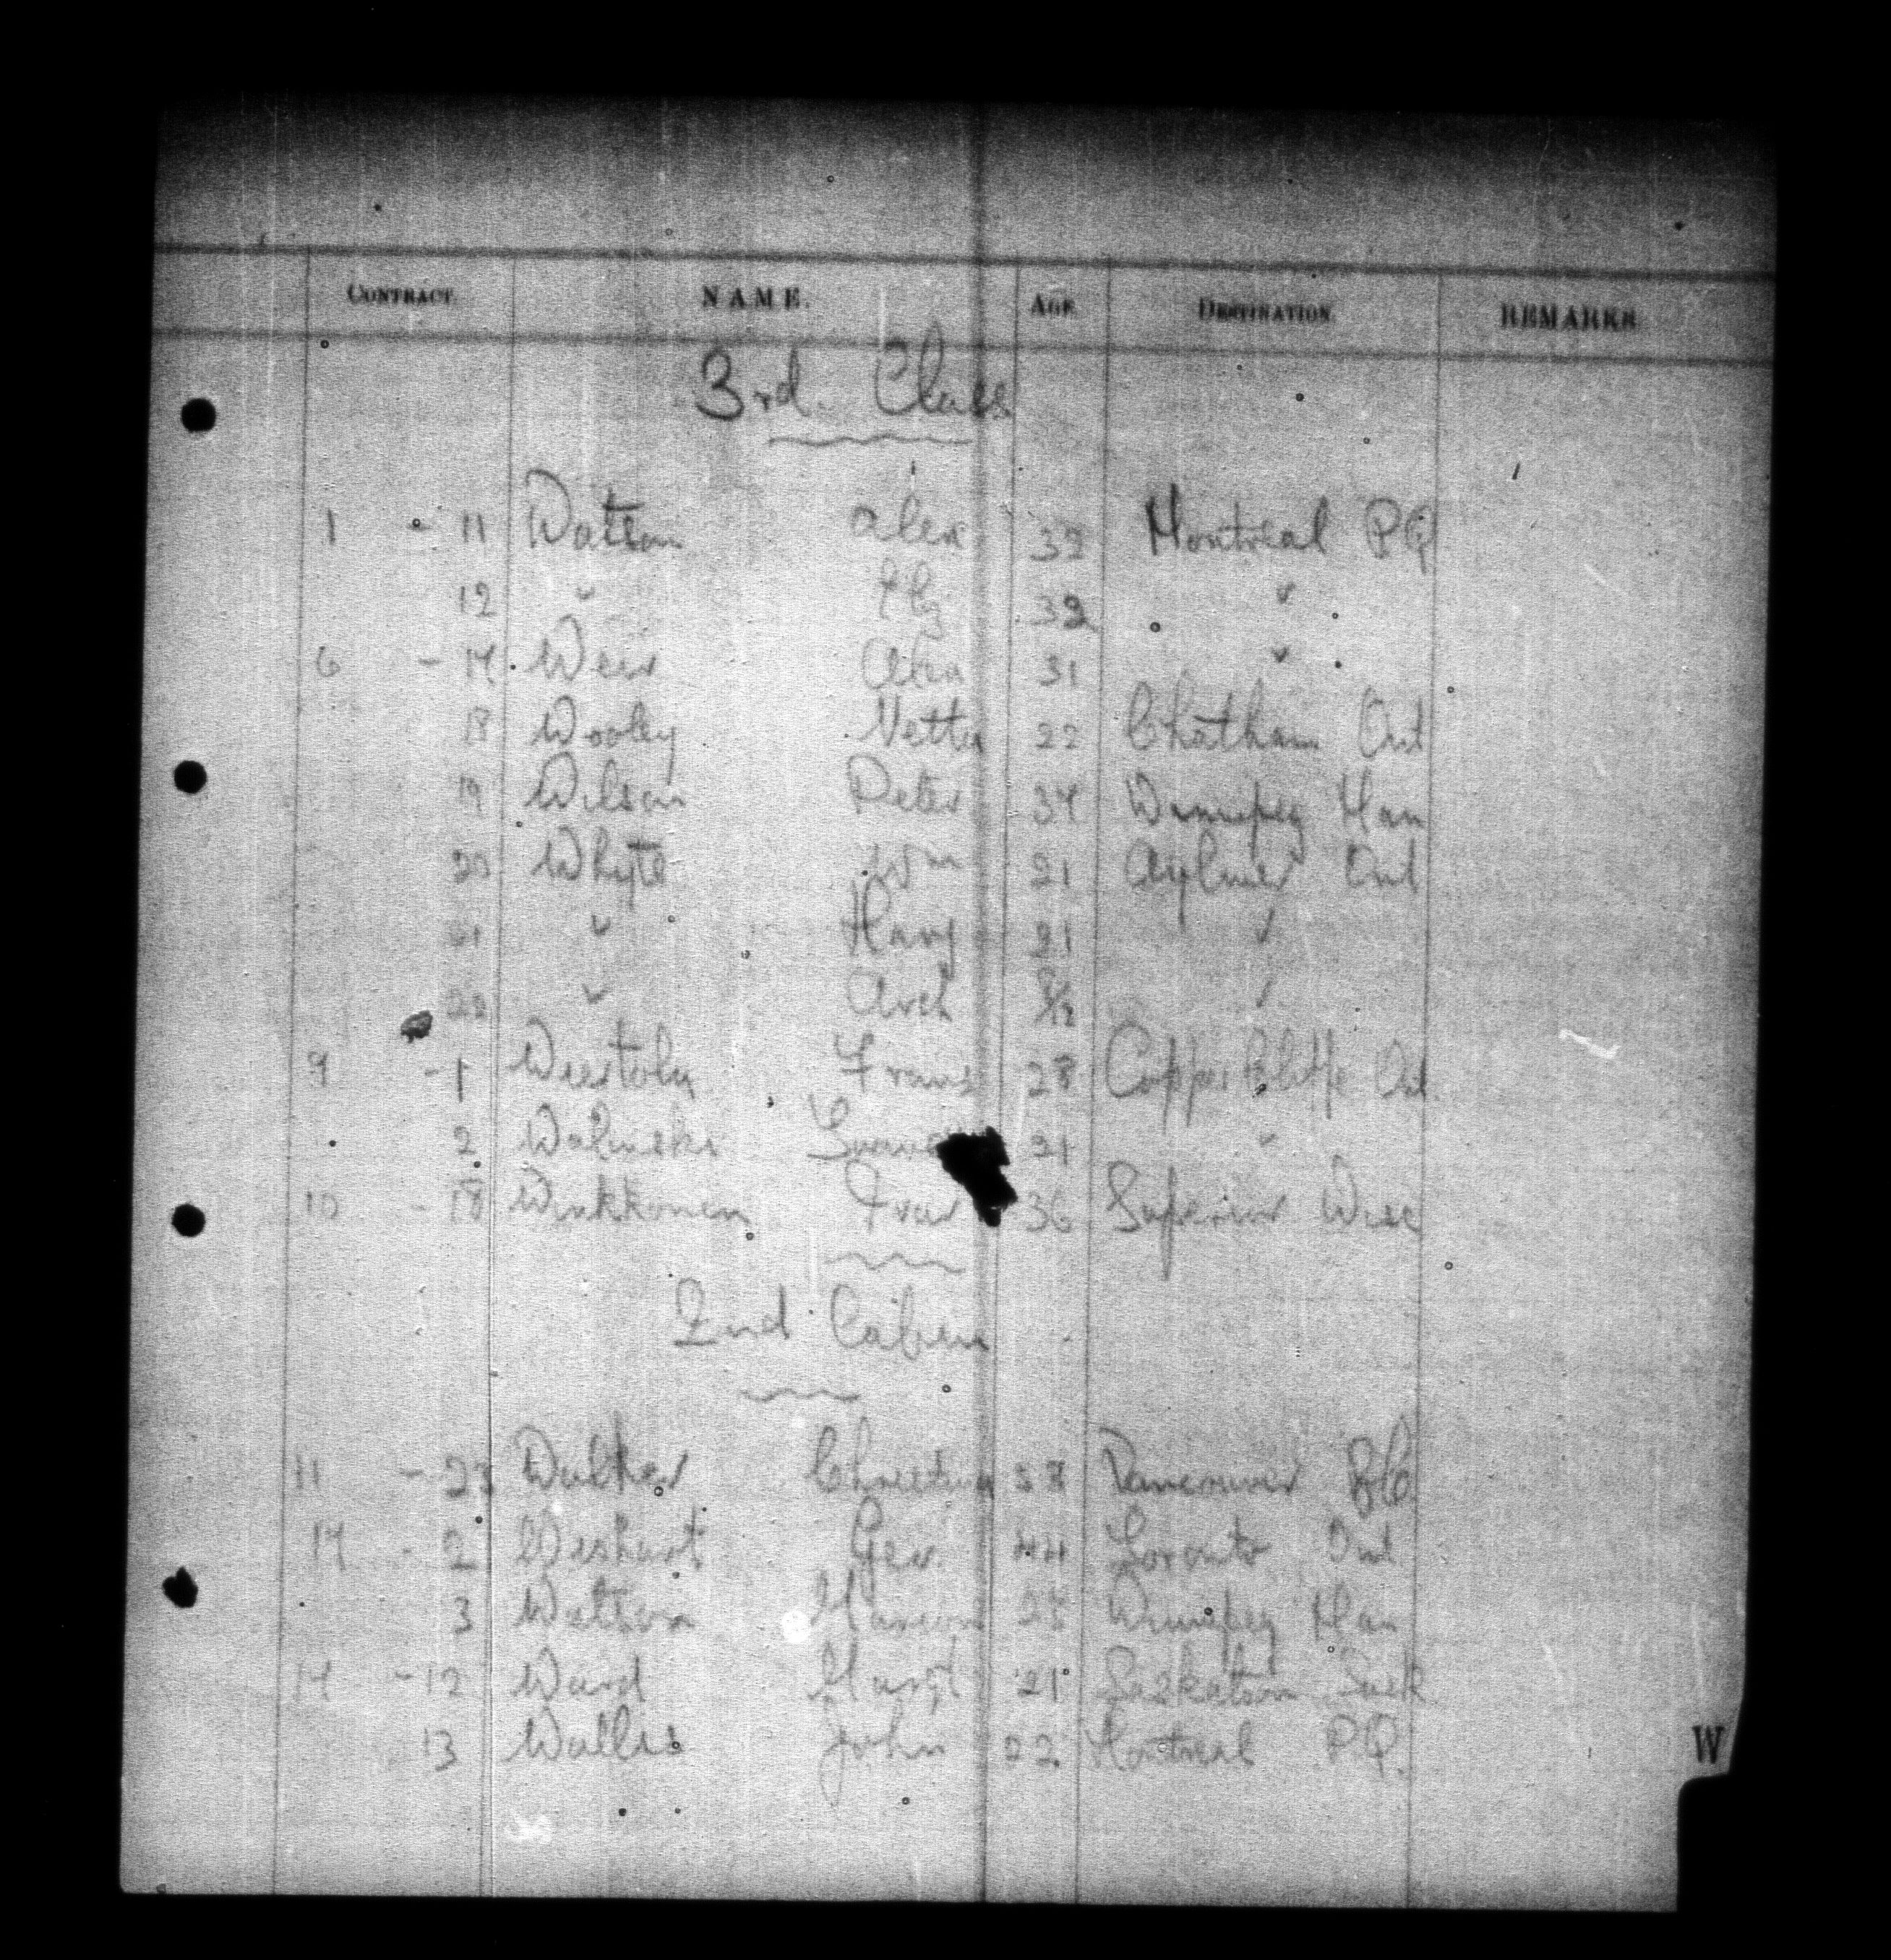 CONTRACT. NAME. AGE DESTINATION. REMARKS
3rd. Class
1 - 11 Watson Alex 32 Montreal PQ
12 " 32 "
6 - 14 Weir Alex 31 "
18 Wooley Netta 22 Chatham Ont
19 Wilson Peter 34 Winnipeg Man
20 Whyte Wm 21 Aylmer Ont
21 " Mary 21 "
22 " Arch "
9 - 1 Frans 28 Copper Cliffe Ont
2 21 "
10 - 18 36 Superior Wisc
2nd Cabin
11 - 23 Walker Christina 58 Vancouver BC
14 - 2 Wishart Geo. 44 Toronto Ont
3 Watson Marion 25 Winnipeg Man
14 - 12 Ward Margt 21 Saskatoon Sask
13 Wallis John 22 Montreal PQ.
W